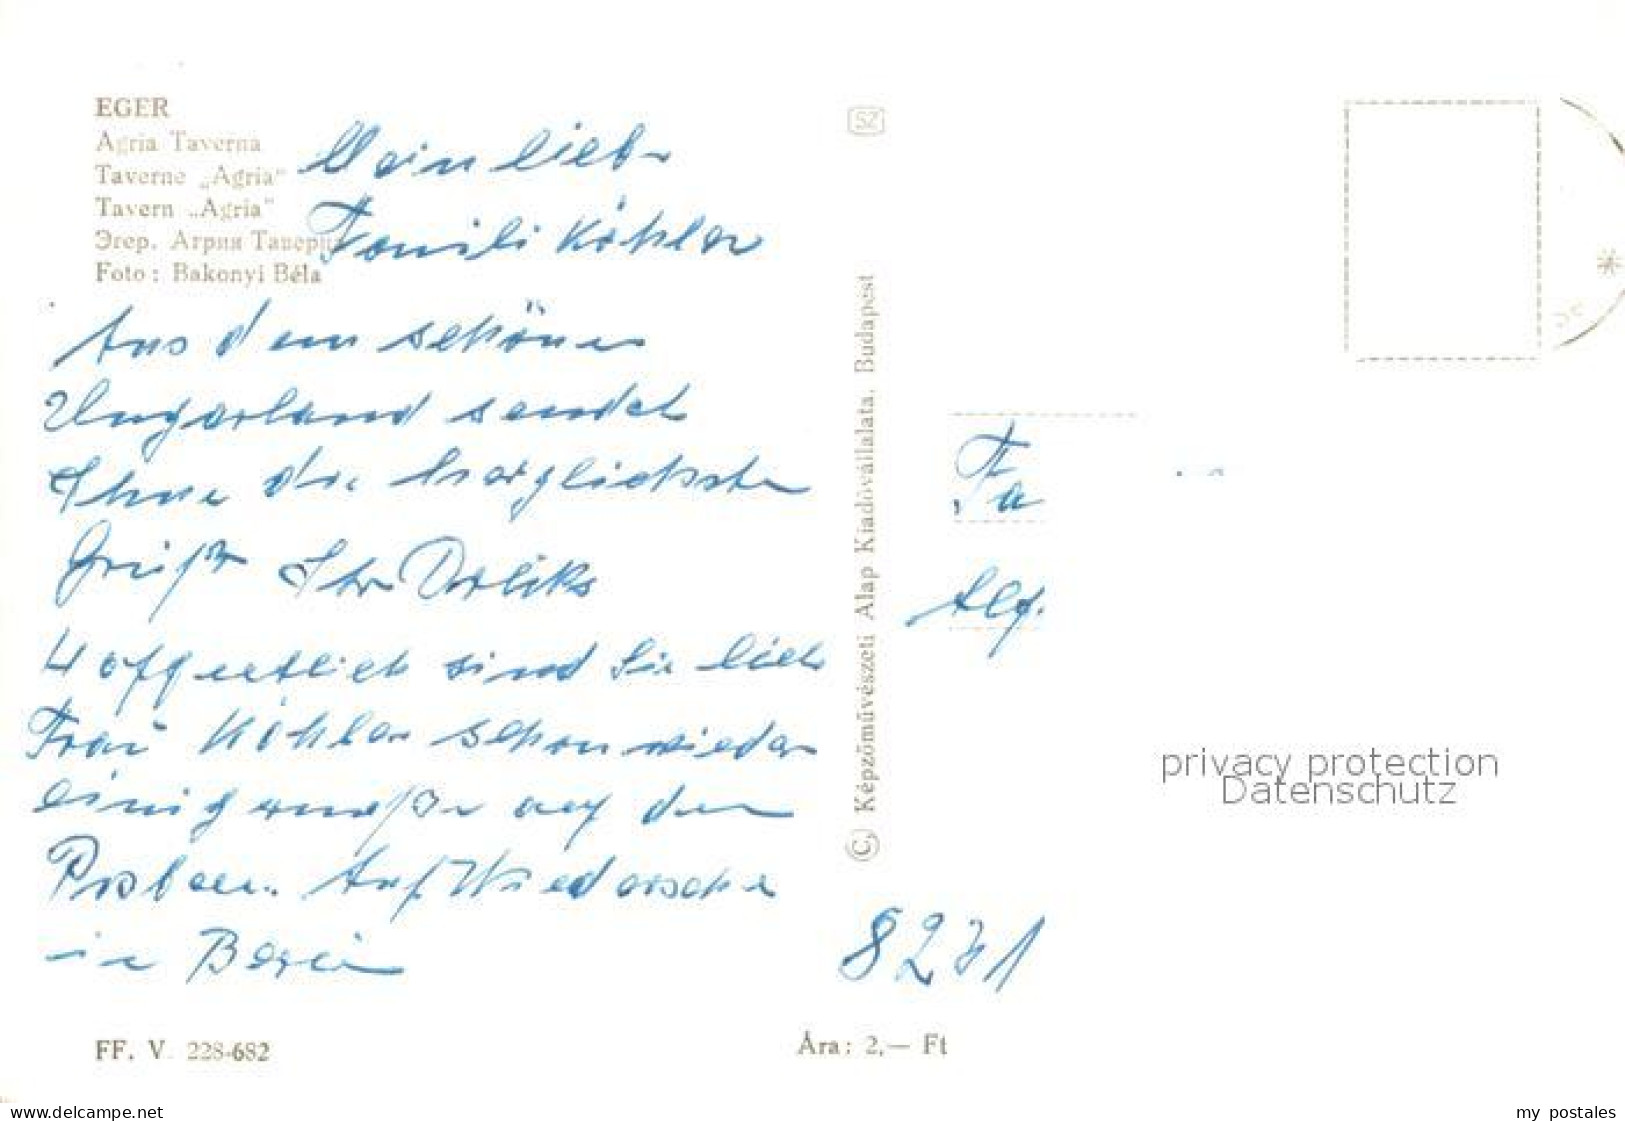 EGER
Agria Taverna
Taverne „Agria"
Tavern „Agria"
Эгер. Агрия Таверна
Foto: Bakonyi Béla
Mein lieb
Familie Köhler
Aus dem schönen
Ungarland sendet
Ihnen die herzlichsten
Grüße Ihr
Hoffentlich sind Sie liebe
Frau Köhler schon wieder
einigermaßen auf den
Auf Wiedersehen
in
FF. V. 228-682
SZ
© Képzőművészeti Alap Kiadóvállalata, Budapest
Fa
8231
Ára: 2,— Ft
privacy protection
Datenschutz
www.delcampe.net
my_postales